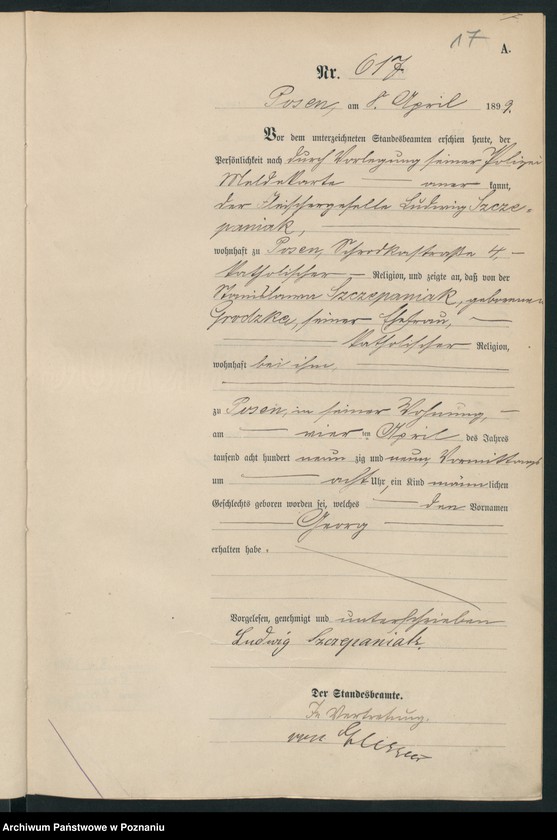 17
A.
Nr. 617
Posen, am 8. April 1899.
Vor dem unterzeichneten Standesbeamten erschien heute, der
Persönlichkeit nach durch Vorlegung seiner Polizei
Meldekarte aner kannt,
der Fleischergeselle Ludwig Szcze-
paniak,
wohnhaft zu Posen, Schrodkastraße 4,
katholischer Religion, und zeigte an, daß von der
Stanislawa Szczepaniak, geborenen
Grodzka, seiner Ehefrau,
katholischer Religion,
wohnhaft bei ihm,
zu Posen, in seiner Wohnung,
am vier ten April des Jahres
tausend acht hundert neun zig und neun, Vormittags
um acht Uhr, ein Kind männ lichen
Geschlechts geboren worden sei, welches den Vornamen
Georg
erhalten habe.
Vorgelesen, genehmigt und unterschrieben
Ludwig Szczepaniak.
Der Standesbeamte.
In Vertretung.
von
Archiwum Państwowe w Poznaniu